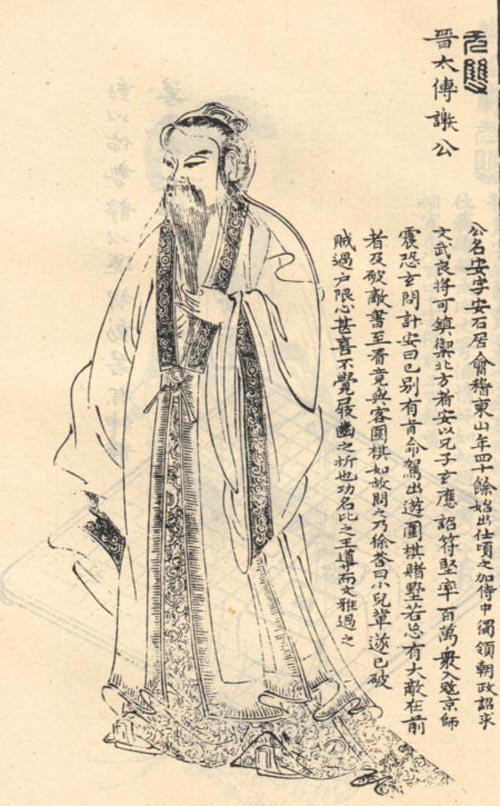 无雙
晉太傅謝公
公名安字安石居會稽東山年四十餘始出仕頃之加侍中獨領朝政詔求
文武良將可鎮禦北方者安以兄子玄應詔符堅率百萬衆入寇京師
震恐玄問計安曰已別有旨命駕出遊圍棋賭墅若忘有大敵在前
者及破敵書至看竟與客圍棋如故問之乃徐荅曰小兒輩遂已破
賊過户限心甚喜不覺屐齒之折也功名比之王導而文雅過之